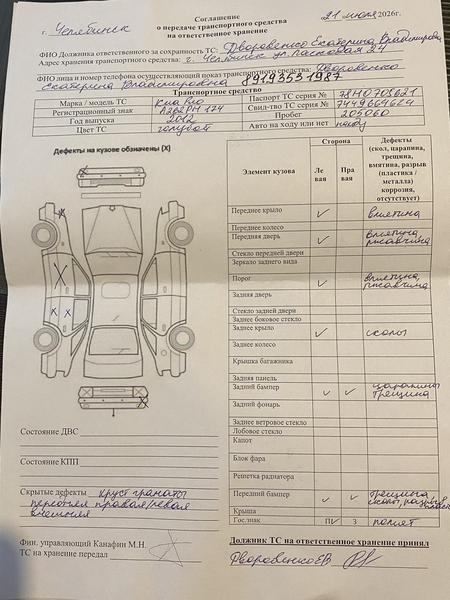 Соглашение
г. Челябинск о передаче транспортного средства 21 июля 2026г.
на ответственное хранение
ФИО Должника ответственного за сохранность ТС: Дворовенко Екатерина Владимировна
Адрес хранения транспортного средства: г. Челябинск ул. Пасковая 24
ФИО лица и номер телефона осуществляющий показ транспортного средства: Дворовенко
Екатерина Владимировна 89193531987
Транспортное средство
Марка / модель ТС Киа Рио Паспорт ТС серия № 78НО705621
Регистрационный знак Свид-тво ТС серия № 7449664624
Год выпуска 2012 Пробег 205060
Цвет ТС голубой Авто на ходу или нет на ходу
Дефекты на кузове обозначены (X)
Элемент кузова Сторона Дефекты
Ле вая Пра вая (скол, царапина, трещина, вмятина, разрыв (пластика / металла) коррозия, отсутствует)
Переднее крыло ✓ вмятина
Переднее колесо
Передняя дверь ✓ вмятина, ржавчина
Стекло передней двери
Зеркало заднего вида
Порог ✓ вмятина, ржавчина
Задняя дверь
Стекло задней двери
Заднее боковое стекло
Заднее крыло ✓ сколы
Заднее колесо
Крышка багажника
Задняя панель
Задний бампер ✓ ✓ царапины трещина
Задний фонарь
Заднее ветровое стекло
Лобовое стекло
Капот
Блок фара
Решетка радиатора
Передний бампер ✓ ✓ трещина, сколы,
Крыша
Гос.знак П✓ З помят
Состояние ДВС
Состояние КПП
Скрытые дефекты хруст гранаты
передняя правая/левая
внешняя
Фин. управляющий Канафин М.Н.
ТС на хранение передал
Должник ТС на ответственное хранение принял
Дворовенко ЕВ